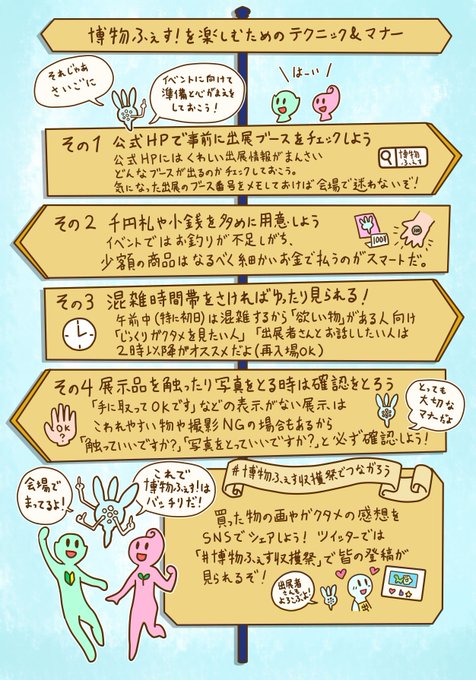 博物ふぇす!を楽しむためのテクニック&マナー
それじゃあ
さいごに
イベントに向けて
準備と心がまえを
しておこう!
はーい
その1 公式HPで事前に出展ブースをチェックしよう
公式HPにはくわしい出展情報がまんさい
どんなブースが出るのかチェックしておこう。
気になった出展のブース番号をメモしておけば会場で迷わないぞ!
博物
ふぇす
その2 千円札や小銭を多めに用意しよう
イベントではお釣りが不足しがち、
少額の商品はなるべく細かいお金で払うのがスマートだ。
1001
100
その3 混雑時間帯をさければゆったり見られる!
午前中(特に初日)は混雑するから「欲しい物」がある人向け
「じっくりガクタメを見たい人」「出展者さんとお話ししたい人は
2時以降がオススメだよ(再入場OK)
その4 展示品を触ったり写真をとる時は確認をとろう
「手に取ってOKです」などの表示がない展示は
こわれやすい物や撮影NGの場合もあるから
「触っていいですか?」「写真をとっていいですか?」と必ず確認しよう!
OK
?
とっても
大切な
マナーだよ
会場で
まってるよ!
これで
博物ふぇす!は
バッチリだ!
#博物ふぇす収穫祭でつながろう
買った物の画やガクタメの感想を
SNSでシェアしよう! ツイッターでは
「#博物ふぇす収穫祭」で皆の登稿が
見られるぞ!
出展者
さんも
よろこぶよ!